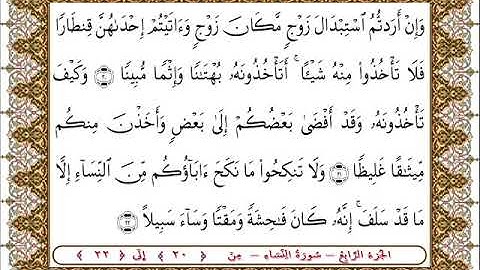 وَإِنْ أَرَدتُّمُ ٱسْتِبْدَالَ زَوْجٍ مَّكَانَ زَوْجٍ وَءَاتَيْتُمْ إِحْدَىٰهُنَّ قِنطَارًا
فَلَا تَأْخُذُوا۟ مِنْهُ شَيْـًٔا ۚ أَتَأْخُذُونَهُۥ بُهْتَـٰنًا وَإِثْمًا مُّبِينًا ﴿٢٠﴾ وَكَيْفَ
تَأْخُذُونَهُۥ وَقَدْ أَفْضَىٰ بَعْضُكُمْ إِلَىٰ بَعْضٍ وَأَخَذْنَ مِنكُم
مِّيثَـٰقًا غَلِيظًا ﴿٢١﴾ وَلَا تَنكِحُوا۟ مَا نَكَحَ ءَابَآؤُكُم مِّنَ ٱلنِّسَآءِ إِلَّا
مَا قَدْ سَلَفَ ۚ إِنَّهُۥ كَانَ فَـٰحِشَةً وَمَقْتًا وَسَآءَ سَبِيلًا ﴿٢٢﴾
الجزء الرابع - سورة النساء - من ﴿ ٢٠ ﴾ إلى ﴿ ٢٢ ﴾